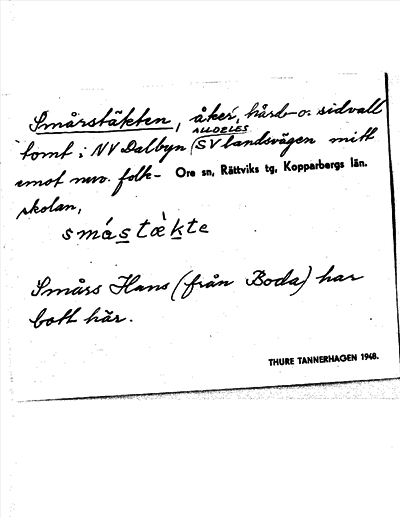 Smårstäkten, åker, hård- o. sidvall
tomt i NV Dalbyn (ALLDELES SV landsvägen mitt
emot nuv. folk- Ore sn, Rättviks tg, Kopparbergs län.
skolan,
smástæ̀kte
Smårs Hans (från Boda) har
bott här.
THURE TANNERHAGEN 1948.